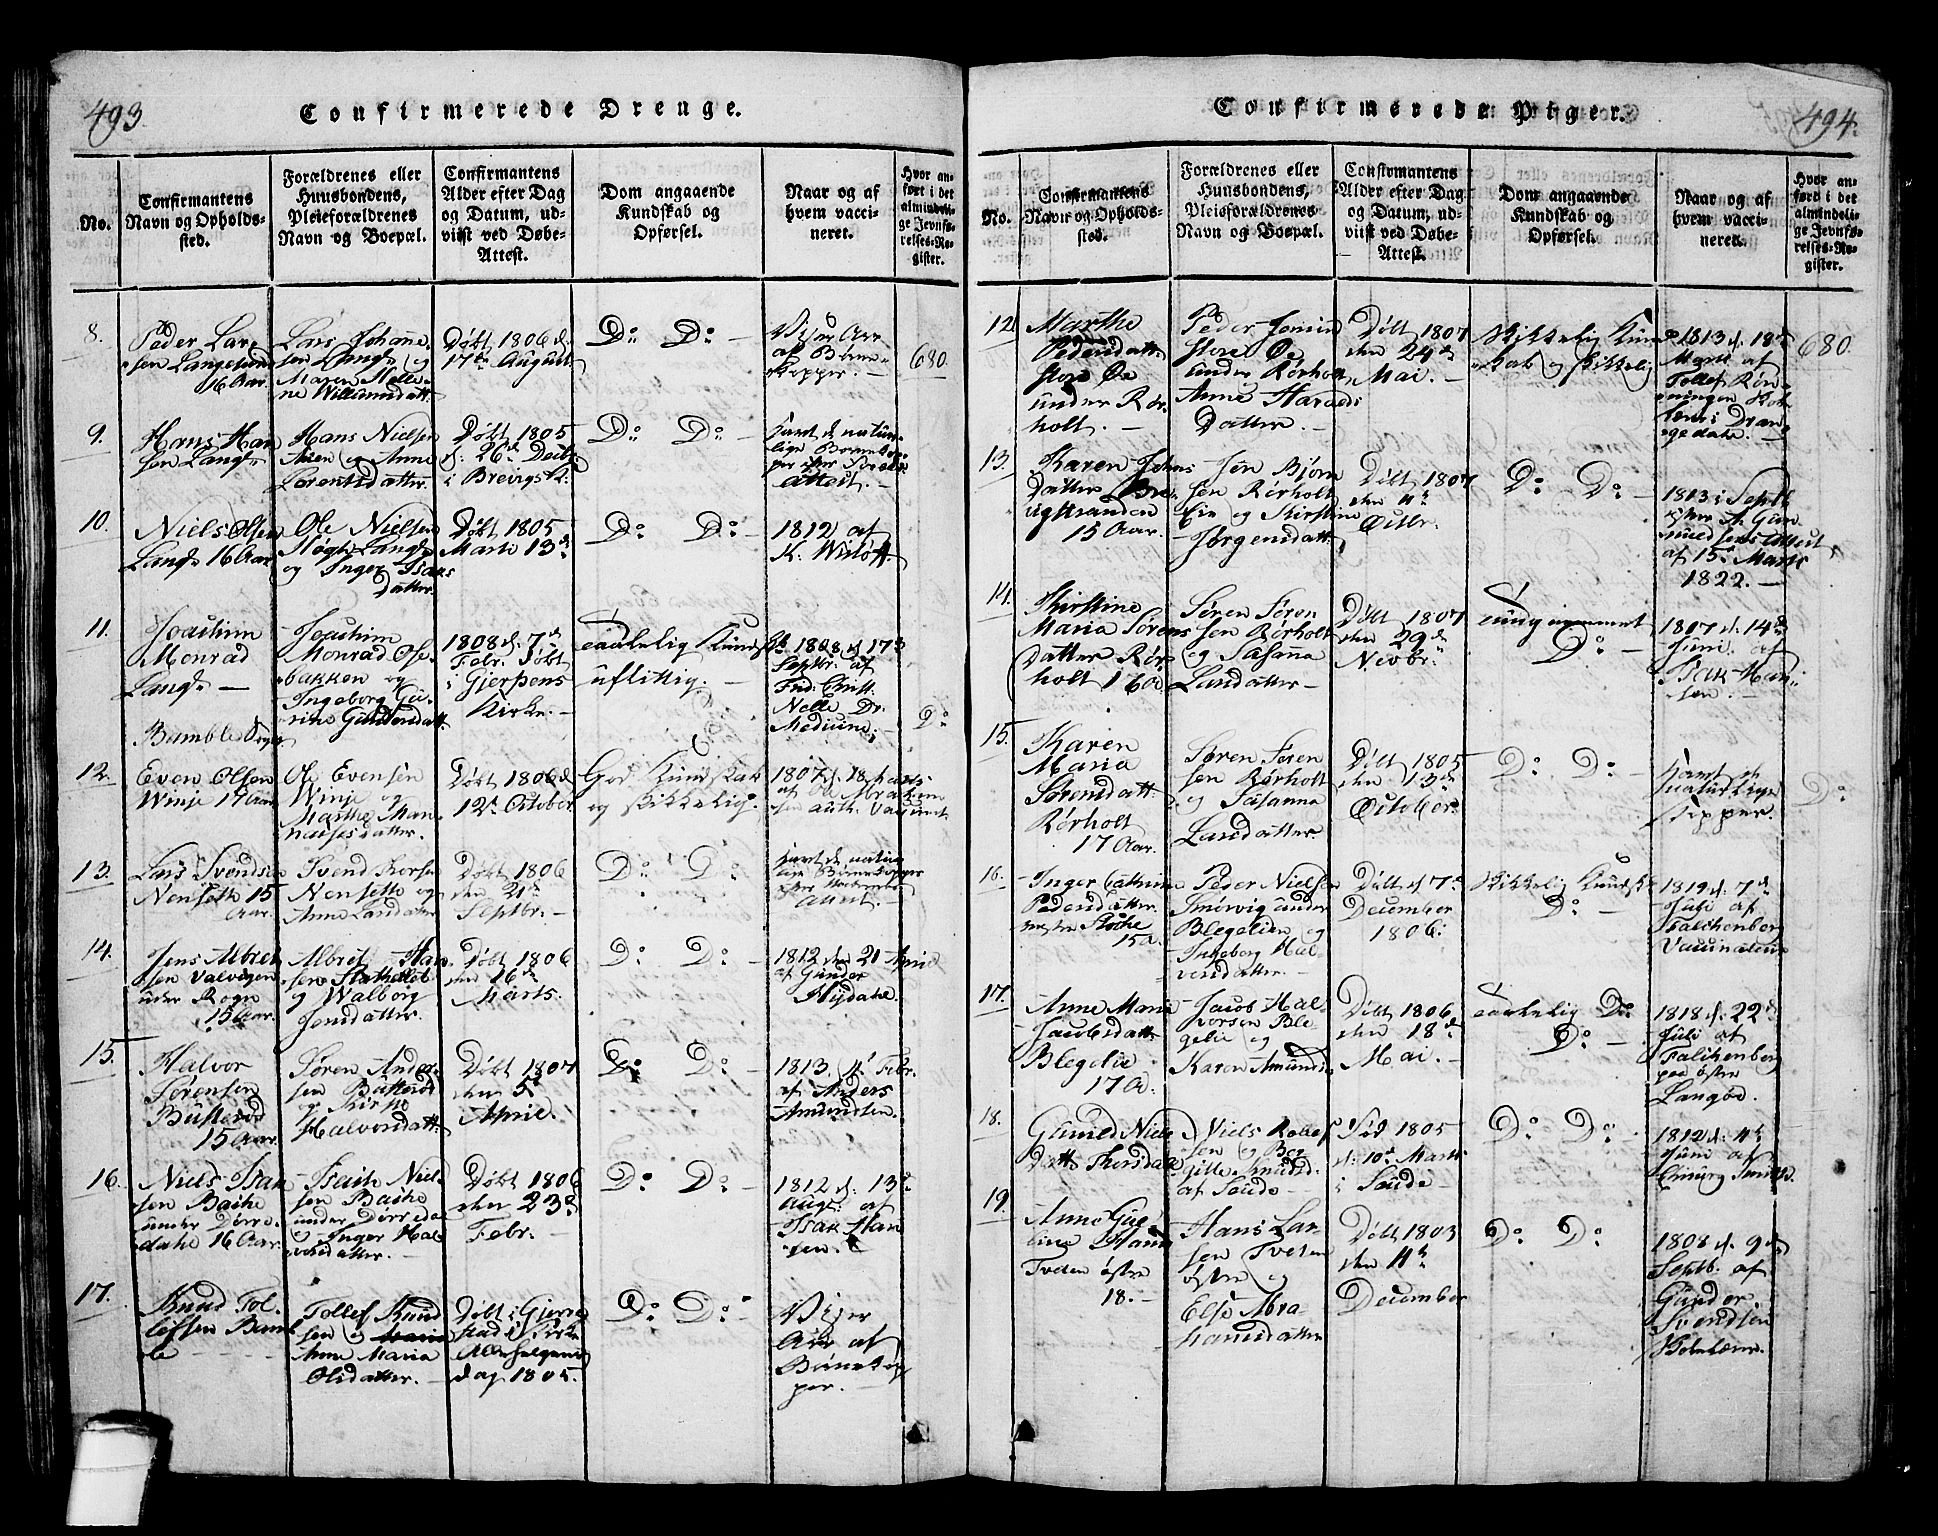 493.
Confirmerede Drenge.
No.
Confirmantens
Navn og Opholds-
sted.
Forældrenes eller
Huusbondens,
Pleieforældrenes
Navn og Boepæl.
Confirmantens
Alder efter Dag
og Datum, ud-
viist ved Døbe-
Attest.
Dom angaaende
Kundskab og
Opførsel.
Naar og af
hvem vacci-
neret.
Hvor an-
ført i det
almindeli-
ge Jevnfø-
relses-Re-
gister.
8.
Peder Lar-
sen Langesund
16 Aar.
Lars Johanne-
sen Langs. og
Maren Malle-
ne Willumsdatt.
Døbt 1806 d.
17de August
Do Do
Viser Arr
af Børne-
kopper.
680.
9.
Hans Han
sen Langs.
Hans Nielsen
og Anne
Lorentsdatter.
Døbt 1805
d. 26d Decbr.
i Brevigs K.
Do Do
havt de natur-
lige Børnekop-
per efter
Attest.
10.
Niels Olsen
Langs. 16 Aar
Ole Nielsen
Høgh Langs.
og Inger Isaks
datter.
Døbt 1805
Marts 13d
Do Do
1812 af
K. Wisløff.
11.
Joachim
Monrad
Langs.
Joachim
Monrad Ose-
bakken og
Ingeborg Ca-
rine Gundersdatt.
1808 d. 7d
Febr. Døbt
i Gjerpens
Kirke.
taalelig Kundsk.
uflittig.
1808 d. 17d
Septbr. af
Frid. Christ.
Nelle Dr.
Medicine.
Do
Bamble Sogn
12.
Even Olsen
Winje 17 Aar
Ole Evensen
Winje og
Marthe Han-
naisesdatter.
Døbt 1806 d.
12d October.
God Kundskab
og skikkelig.
1807 d. 18 Marts
af Ole Abraham
sen auth. Vaccinat.
13.
Lars Svendsen
Nensette 15
Aar.
Svend Thorsen
Nensette og
Anne Larsdatter
Døbt 1806
den 21d
Septbr.
Do Do
havt de natur-
lige Børnekopper
efter
Attest.
14.
Jens Albret
sen Valvigen
under Rogn
15 Aar.
Albret Han
sen Stathelle
og Walborg
Jensdatter.
Døbt 1806
den 16d
Marts.
Do Do
1812 den 21 April
af Gunder
Hydahl.
15.
Halvor
Sørensen
Bustrød
15 Aar.
Søren Ander-
sen Bustrød
og Kirstie
Halvorsdatt.
Døbt 1807
den 5d
April.
Do Do
1813, 4d Febr.
af Anders
Amundsen.
16.
Niels Isak
sen Bakke
under Dørre-
dahl 16 Aar.
Isach Niel-
sen Bakke
under Dørredal
og Inger Hal-
vorsdatter.
Døbt 1806
den 23d
Febr.
Do Do
1812 d. 13d
Augt. af
Isak Han
sen.
17.
Knud Tol-
lefsen Bamb
le
Tollef Knud
sen og
Anne Maria
Olsdatter.
Døbt i Gjerre
stad i Kirke
Allehelgens
dag 1805.
Do Do
Viser
Arr af
Børnekop
per.
494.
Confirmerede Piger.
No.
Confirmantens
Navn og Opholds-
sted.
Forældrenes eller
Huusbondens,
Pleieforældrenes
Navn og Boepæl.
Confirmantens
Alder efter Dag
og Datum, ud-
viist ved Døbe-
Attest.
Dom angaaende
Kundskab og
Opførsel.
Naar og af
hvem vacci-
neret.
Hvor an-
ført i det
almindeli-
ge Jevnfø-
relses-Re-
gister.
12.
Marthe
Pedersdatt.
store Øe
under Rør-
holt.
Peder Jonsen
store Øe
under Rørholt
Anne Haralds
Datter.
Døbt 1807
den 24d
Mai.
Skikkelig Kund
skab og skikkelig
1813 d. 18d
Marts af
Tollef Røn-
ningen Kob-
bens Dran-
gedahl.
680.
13.
Karen Jens
Datter Bre-
vigstranden
15 Aar.
Jen Bjørn
sen Rørholt
Eie og Kirstine
Jørgensdatt.
Døbt 1807
den 4d
Octbr.
Do Do
1813 i Septb.
efter A. Gun
nulfsens Attest
af 15d Marts
1822.
14.
Kirstine
Maria Sørens
datter Rør-
holt 16 A.
Søren Søren
sen Rørholt
og Susanna
Larsdatter
Døbt 1807
den 29d
Novbr.
Do
1807 d. 14d
Juni af
Isak Han-
sen.
15.
Karen
Maria
Sørensdatt.
Rørholt
17 Aar.
Søren Søren
sen Rørholt
og Susanna
Larsdatter
Døbt 1805
den 13d
October.
Do Do
havt de
naturlige
Kopper.
Do
16.
Inger Cathrine
Pedersdatter.
15 A.
Peder Nielsen
Smørvig under
Blegelien og
Ingeborg Hal-
vorsdatter.
Døbt d. 7d
December
1806.
Skikkelig Kundsk.
Do
1819 d. 7d
Juli af
Falchenberg
Vaccinateur
17.
Anne Maria
Jacobsdatt.
Blegelie
17 A.
Jacob Hal-
vorsen Ble-
gelie og
Karen Amunds
Døbt 1806
den 18d
Mai.
taalelig Do
Do
1818 d. 22d
Juli af
Falchenberg
paa østre
Langøe.
18.
Gunild Niels
Datt. Thorsdal
Niels Rollef
sen og Beg
gitte Knudsd.
af Soude
Død 1805
d. 10d Marts
i Soude
Do Do
1812 d. 4d
Juni af
Chirurg
19.
Anne Gue-
line Hans
Tveten østre
18.
Hans Lar-
sen Tveten
østre og
Else Abra
hamsdatter
Døbt 1803
den 11d
December
Do Do
1808 d. 9d
Septb. af
Gunder
Svendsen